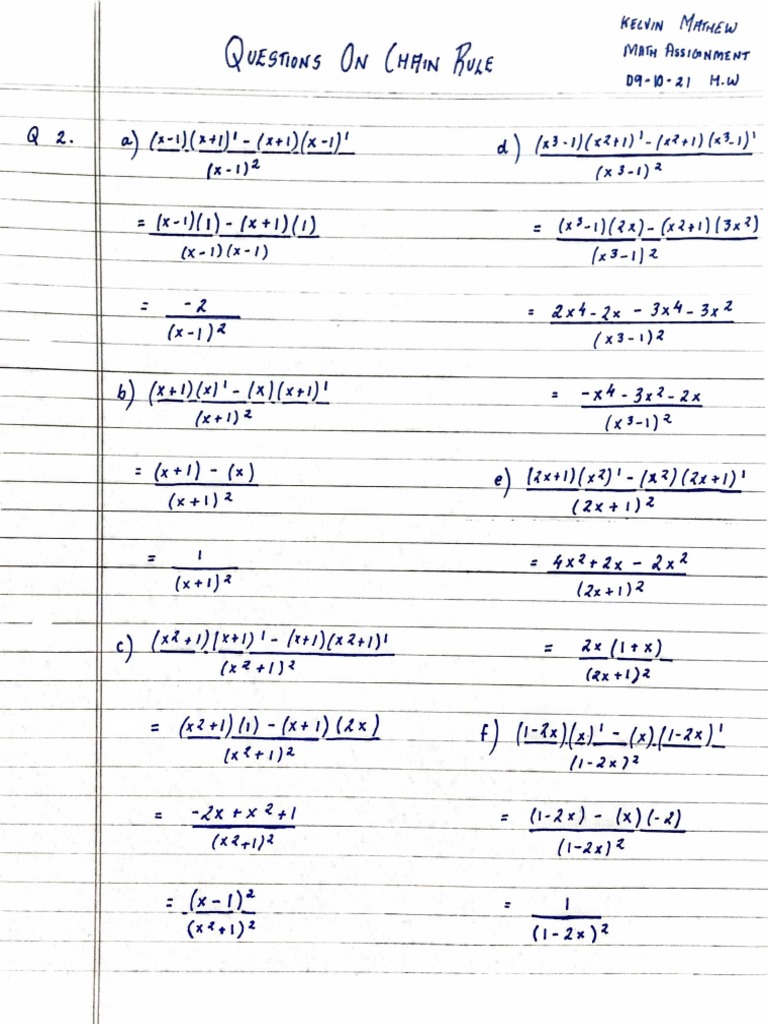 QUESTIONS ON CHAIN RULE
KELVIN MATHEW
MATH ASSIGNMENT
09-10-21 H.W
Q 2.
a) (x-1)(x+1)' - (x+1)(x-1)'
(x-1)²
= (x-1)(1) - (x+1)(1)
(x-1)(x-1)
= -2
(x-1)²
b) (x+1)(x)' - (x)(x+1)'
(x+1)²
= (x+1) - (x)
(x+1)²
= 1
(x+1)²
c) (x²+1)(x+1)' - (x+1)(x²+1)'
(x²+1)²
= (x²+1)(1) - (x+1)(2x)
(x²+1)²
= -2x + x² + 1
(x²+1)²
= (x-1)²
(x²+1)²
d) (x³-1)(x²+1)' - (x²+1)(x³-1)'
(x³-1)²
= (x³-1)(2x) - (x²+1)(3x²)
(x³-1)²
= 2x⁴ - 2x - 3x⁴ - 3x²
(x³-1)²
= -x⁴ - 3x² - 2x
(x³-1)²
e) (2x+1)(x²)' - (x²)(2x+1)'
(2x+1)²
= 4x² + 2x - 2x²
(2x+1)²
= 2x(1+x)
(2x+1)²
f) (1-2x)(x)' - (x)(1-2x)'
(1-2x)²
= (1-2x) - (x)(-2)
(1-2x)²
= 1
(1-2x)²